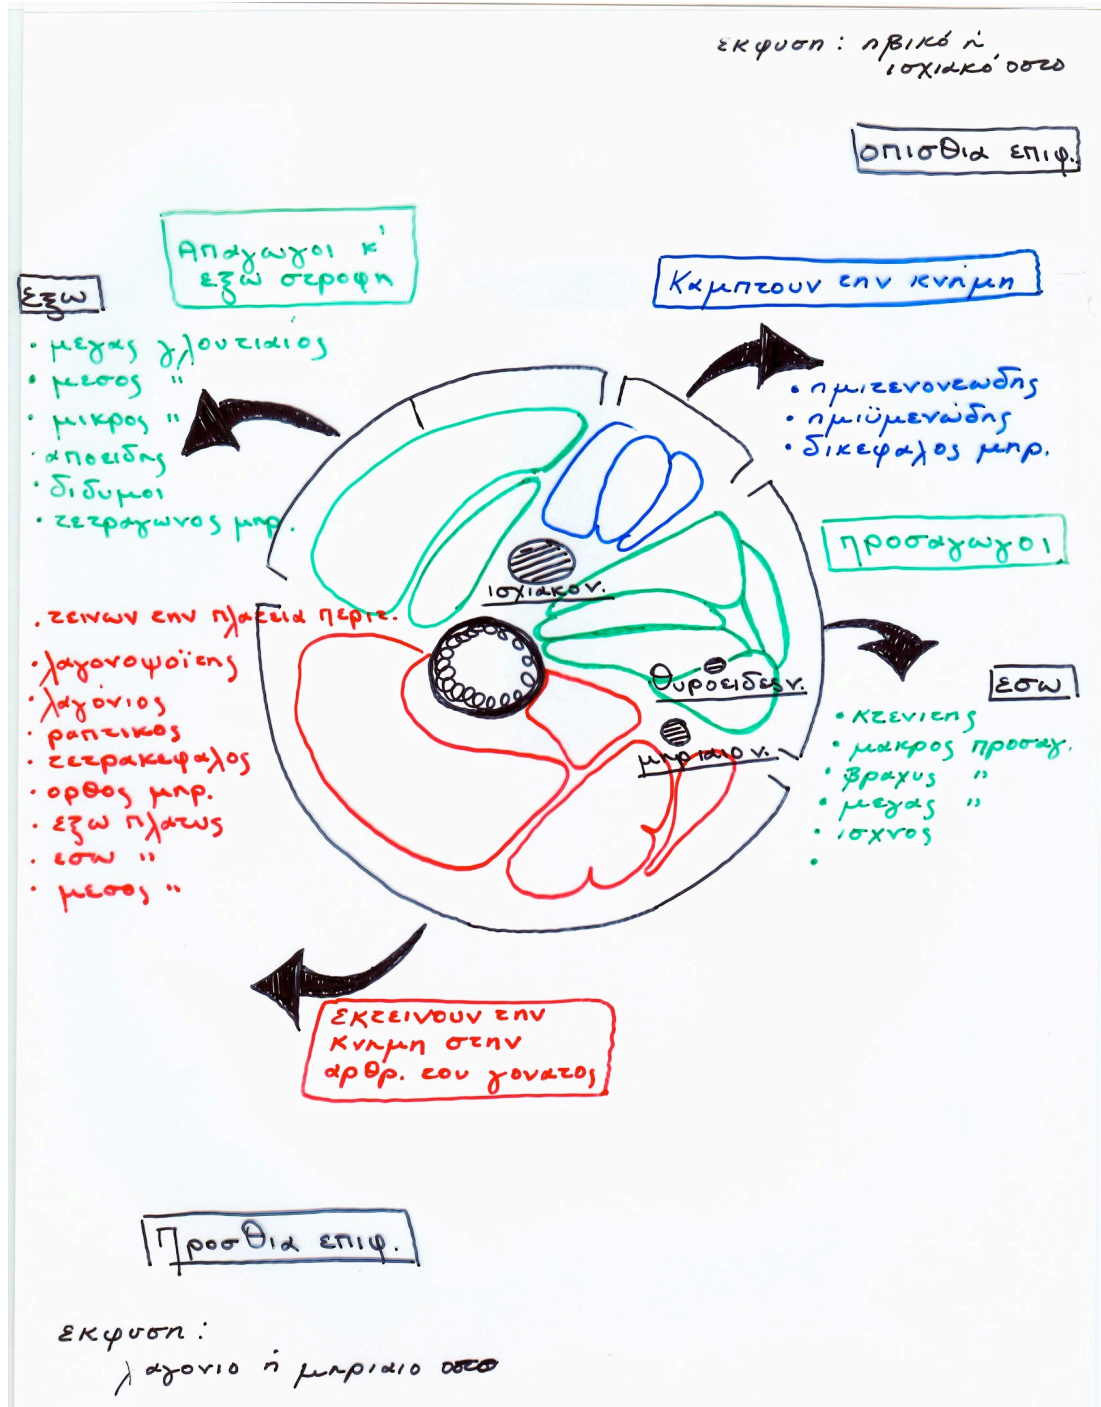 εκφυση: ηβικό ή
ισχιακό οστο
οπισθια επιφ.
Απαγωγοι κ'
εξω στροφη
εξω
Καμπτουν την κνήμη
· μεγας γλουτιαιός
· μεσος "
· μικρος "
· αποειδης
· διδυμοι
· τετραγωνος μηρ.
· ημιτενοντωδης
· ημιϋμενώδης
· δικεφαλος μηρ.
προσαγωγοι
ισχιακο ν.
. τεινων την πλατεια περιτ.
· λαγονοψοϊτης
· λαγόνιος
· ραπτικος
· τετρακεφαλος
· ορθος μηρ.
· εξω πλατυς
· εσω "
· μεσος "
θυροειδες ν.
μηριαιο ν.
εσω
· κτενιτης
· μακρος προσαγ.
· βραχυς "
· μεγας "
· ισχνος
·
Εκτεινουν την
κνημη στην
αρθρ. του γονατος
Προσθια επιφ.
εκφυση:
λαγονιο ή μηριαιο οστο